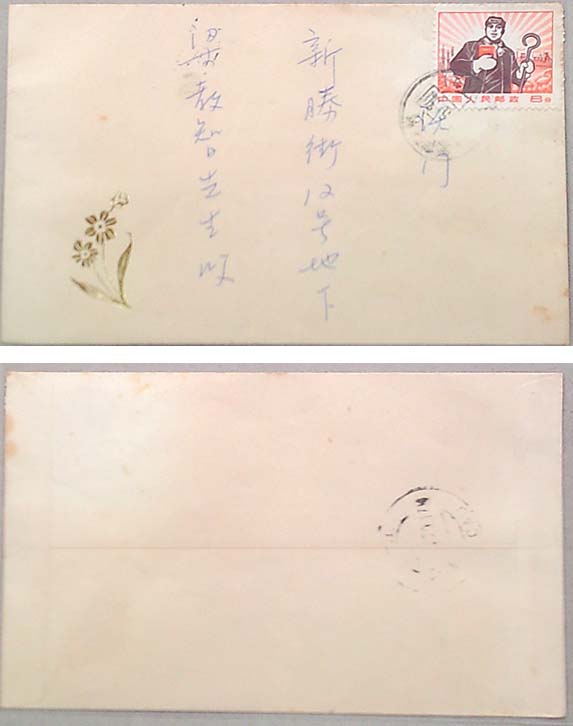 中国人民邮政 8分
澳门
新勝街12号地下
梁教智先生收